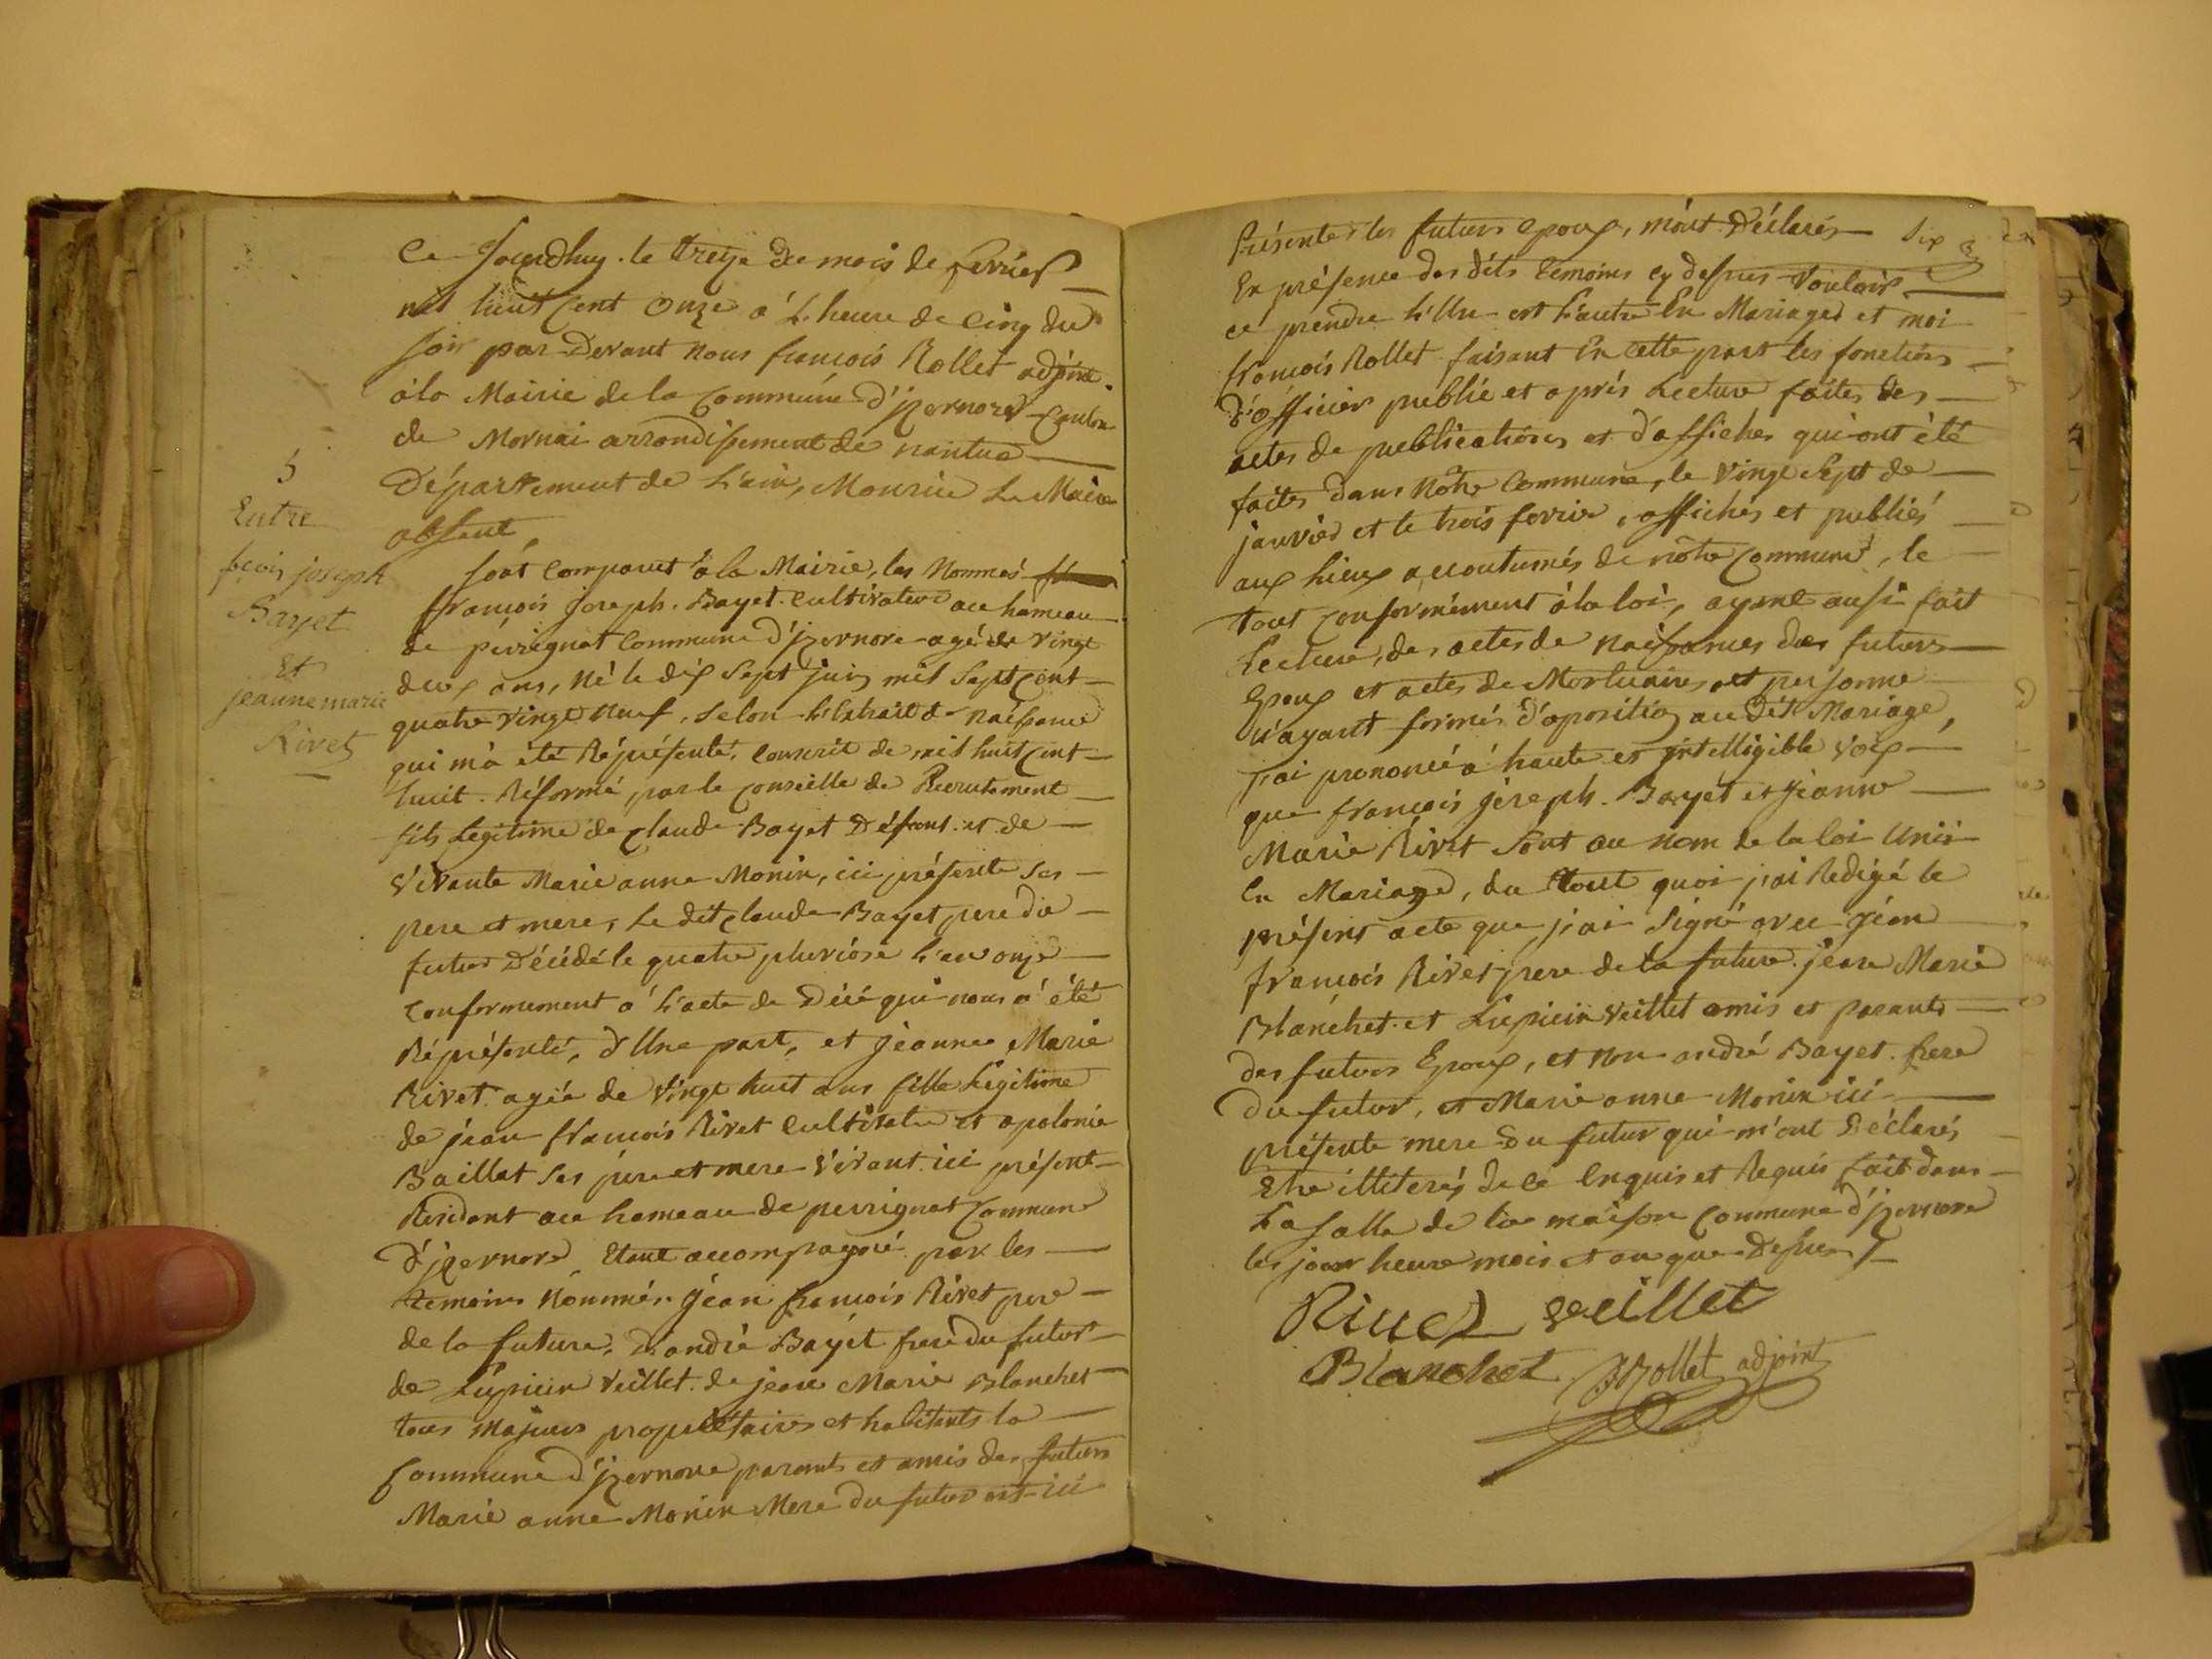 5
Entre
fçois joseph
Bayet
Et
jeanne marie
Rivet
Ce Jourdhuy le treize du mois de fevrier
mil huit Cent Onze à L'heure de Cinq du
soir par Devant nous françois Rollet adjoint
à la Mairie de la Commune d'jzernore Canton
de Mornai arrondissement de nantua
Département de L'ain, Monsieur Le Maire
absent,
sont Comparut à la Mairie, les Nommés
françois joseph Bayet Cultivateur au hameau
de pévrignat Commune d'jzernore agé de vingt
deux ans, Né le dix Sept juin mil Sept Cent
quatre vingt Neuf, Selon L'Extrait de naissance
qui m'a été Réprésenté, Conscrit de mil huit Cent
huit Réformé par le Conseille de Recrutement
fils Légitime de Claude Bayet Défunt et de
vivante Marie anne Monin, ici présente Ses
pere et mere, Le dit Claude Bayet pere du
futur Décédé le quatre pluviose L'an onze
Conformement à L'acte de Décé qui nous a été
Réprésenté, d'Une part, et jeanne Marie
Rivet agée de Vingt huit ans fille Légitime
de jean françois Rivet Cultivateur et apolonie
Baillat Ses pere et mere vivant ici présent
Résidant au hameau de pevrignat Commune
d'jzernore Etant accompagné par les
temoins Nommés jean françois Rivet pere
de la future, d'andré Bayet frere du futur
de Lupicin Veillet de jean Marie Blanchet
tous Majeurs propriétaires et habitants la
Commune d'jzernore parents et amis des futurs
Marie anne Monin Mere du futur est ici
six
Présentes les futurs Epoux, m'ont Déclarés
En présence des dits temoins Cy dessus vouloir
ce prendre L'Un et L'autre En Mariage et moi
françois Rollet faisant En Cette part les fonctions
d'officier public et après Lecture faites des
actes de publications et d'affiches qui ont été
faites dans Notre Commune, le Vingt Sept de
janvier et le trois fevrier, affichés et publiés
aux Lieux accoutumés de notre Commune, le
tout Conformément à la loi, ayant aussi fait
Lecture, des actes de naissances des futurs
Epoux et actes de Mortuaires et personne
n'ayant formés d'oposition au Dit Mariage,
j'ai prononcé à haute et intelligible voix
que françois joseph Bayet et jeanne
Marie Rivet Sont au nom de la loi Unis
En Mariage, du tout quoi j'ai Redigé le
présent acte que j'ai Signé avec jean
françois Rivet pere de la future jean Marie
Blanchet et Lupicin Veillet amis et parants
des futurs Epoux, et non andré Bayet frere
du futur, et Marie anne Monin ici
présente mere du futur qui m'ont Déclarés
Etre illiterés de ce Enquis et Requis fait dans
La Salle de la maison Commune d'jzernore
les jour heure mois et an que Dessus
Rivet veillet
Blanchet Rollet adjoint